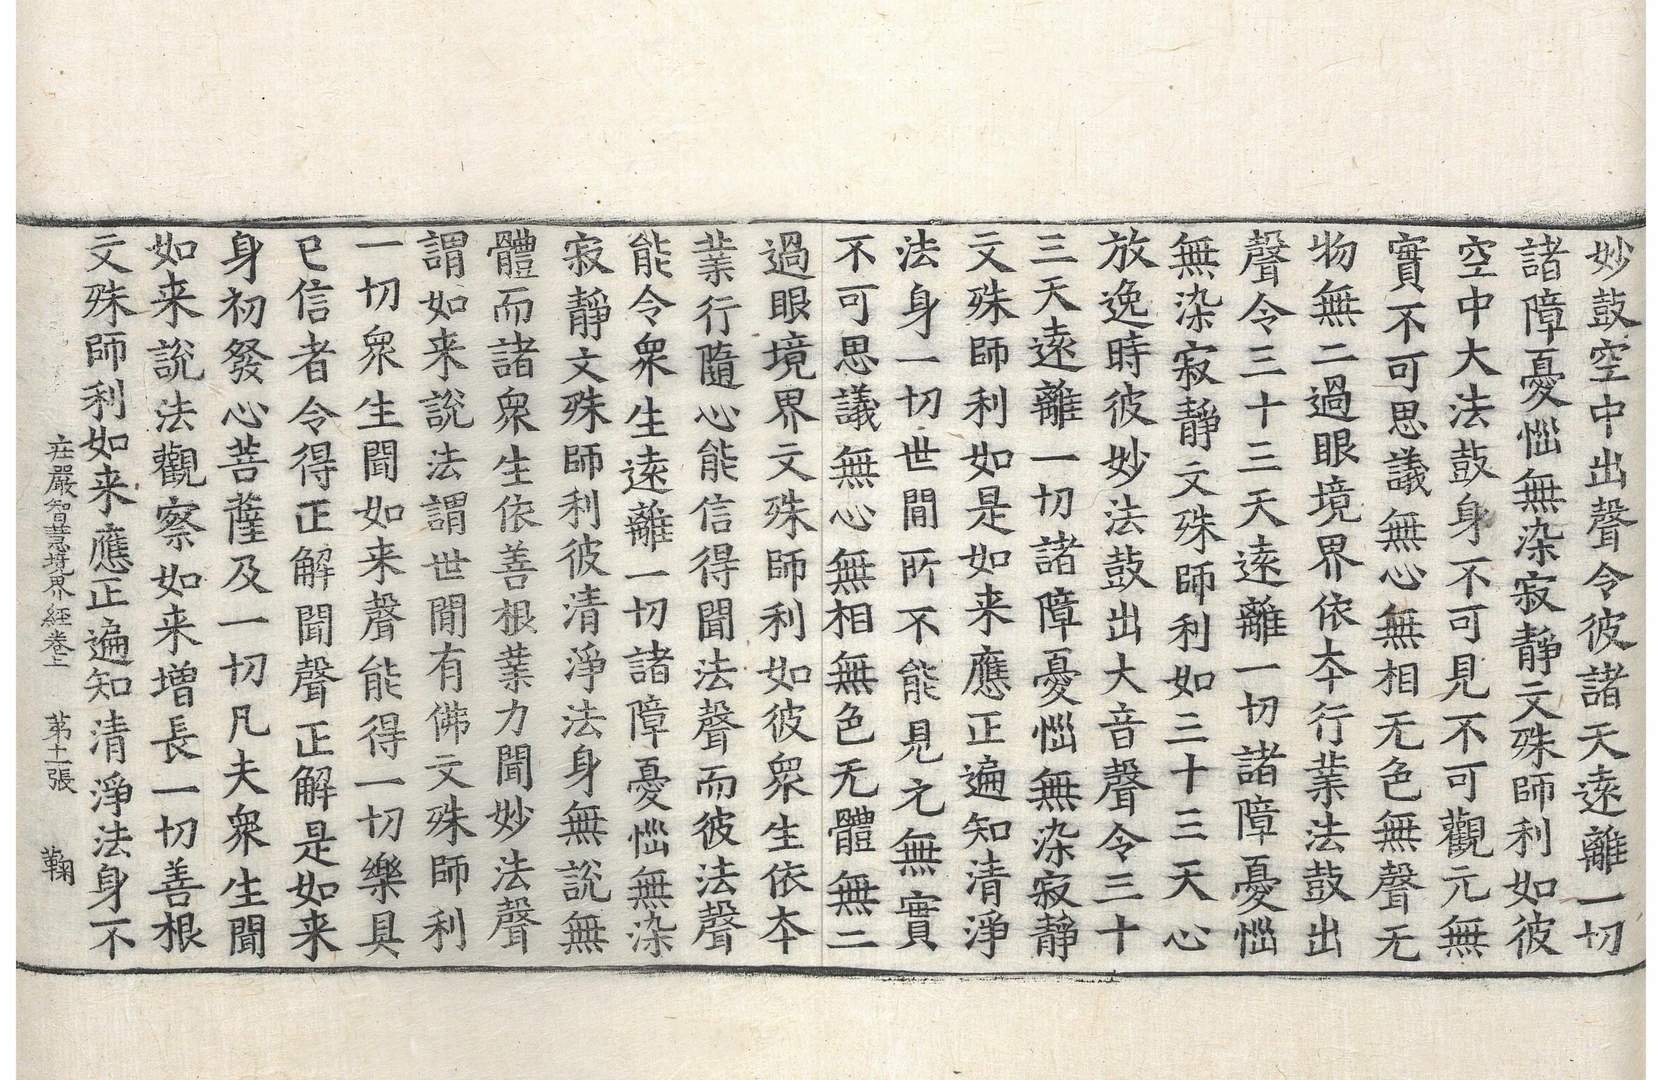 妙鼓空中出聲令彼諸天遠離一切
諸障憂惱無染寂靜文殊師利如彼
空中大法鼓身不可見不可觀元無
實不可思議無心無相无色無聲无
物無二過眼境界依夲行業法鼓出
聲令三十三天遠離一切諸障憂惱
無染寂靜文殊師利如三十三天心
放逸時彼妙法鼓出大音聲令三十
三天遠離一切諸障憂惱無染寂靜
文殊師利如是如来應正遍知清淨
法身一切世間所不能見元無實
不可思議無心無相無色无體無二
過眼境界文殊師利如彼衆生依夲
業行隨心能信得聞法聲而彼法聲
能令衆生遠離一切諸障憂惱無染
寂靜文殊師利彼清淨法身無說無
體而諸衆生依善根業力聞妙法聲
謂如来說法謂世間有佛文殊師利
一切衆生聞如来聲能得一切樂具
已信者令得正解聞聲正解是如来
身初發心菩薩及一切凡夫衆生聞
如来說法觀察如来增長一切善根
文殊師利如来應正遍知清淨法身不
庄嚴智慧境界経卷上 苐十一張 鞠